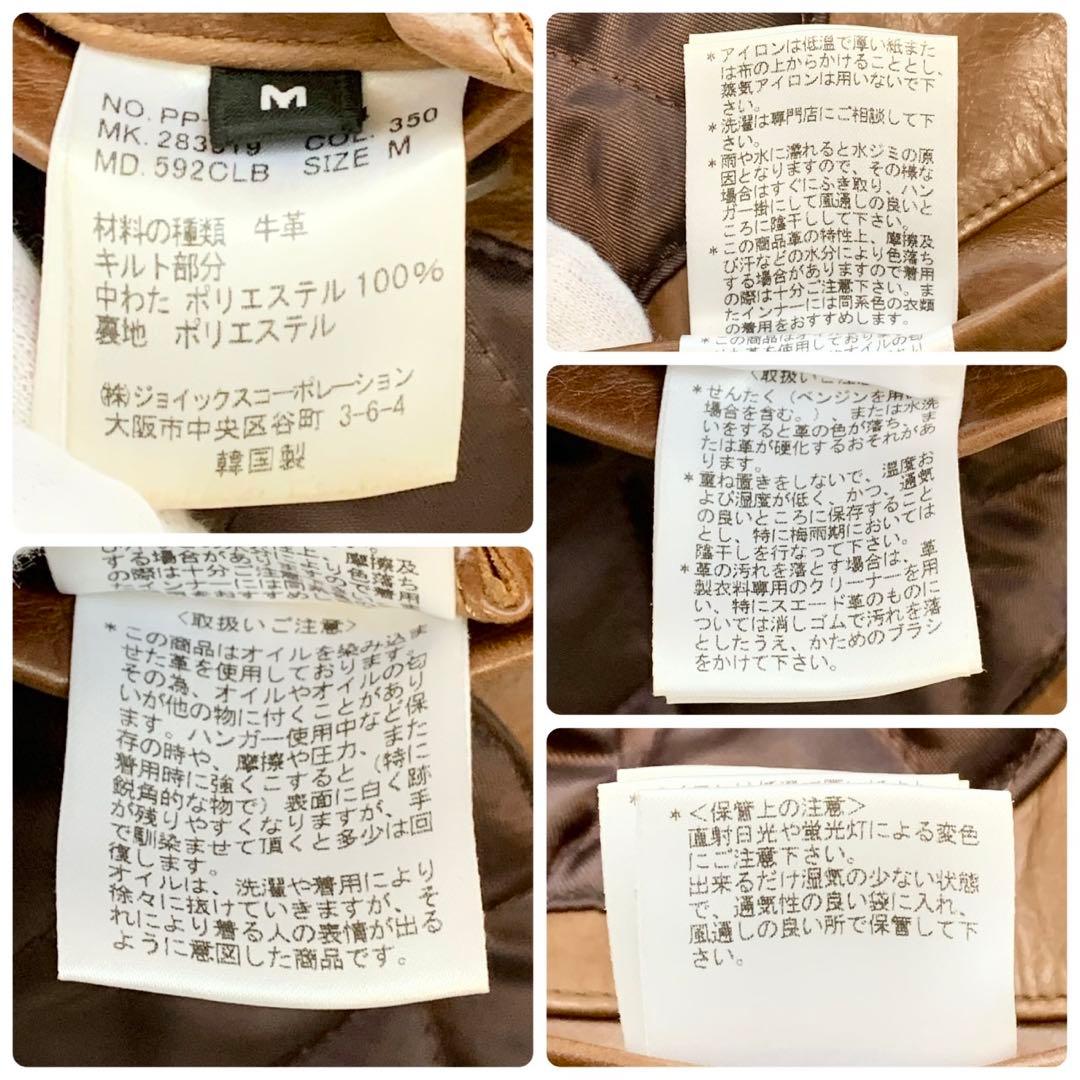 M
NO. PP-
MK. 283 19 COL. 350
MD. 592CLB SIZE M
材料の種類 牛革
キルト部分
中わた ポリエステル100%
裏地 ポリエステル
㈱ジョイックスコーポレーション
大阪市中央区谷町 3-6-4
韓国製
*アイロンは低温で厚い紙また
は布の上からかけることとし、
蒸気アイロンは用いないで下
さい。
*洗濯は専門店にご相談して下
さい。
*雨や水に濡れると水ジミの原
因となりますので、その様な
場合はすぐにふき取り、ハン
ガー掛にして風通しの良いと
ころに陰干しして下さい。
*この商品革の特性上、摩擦及
び汗などの水分により色落ち
する場合がありますので着用
の際は十分ご注意下さい。ま
たインナーには同系色の衣類
の着用をおすすめします。
*この商品は
革を使用しており
〈取扱いご注意
*せんたく（ベンジンを用
場合を含む。）、または水洗
いをすると革の色が落ち、ま
たは革が硬化するおそれがあ
ります。
*重ね置きをしないで、温度お
よび湿度が低く、かつ、通気
の良いところに保存すること
とし、特に梅雨期においては
陰干しを行なって下さい。
*革の汚れを落とす場合は、革
製衣料専用のクリーナーを用
い、特にスエード革のものに
ついては消しゴムで汚れを落
としたうえ、かためのブラシ
をかけて下さい。
摩擦及
色落ち
する場合があ
の際は十分ご
〈取扱いご注意〉
*この商品はオイルを染み込ま
せた革を使用しております。
その為、オイルやオイルの匂
いが他の物に付くことがあり
ます。ハンガー使用中など保
存の時や、摩擦や圧力、また
着用時に強くこすると（特に
鋭角的な物で）表面に白く跡
が残りやすくなりますが、手
で馴染ませて頂くと多少は回
復します。
オイルは、洗濯や着用により
徐々に抜けていきますが、そ
れにより着る人の表情が出る
ように意図した商品です。
*〈保管上の注意〉
直射日光や蛍光灯による変色
にご注意下さい。
出来るだけ湿気の少ない状態
で、通気性の良い袋に入れ、
風通しの良い所で保管して下
さい。